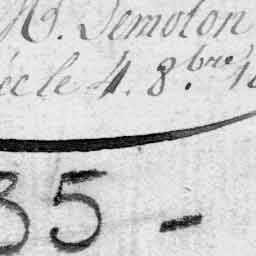 H. Demolon
écle 4. 8.bre 18
35 -